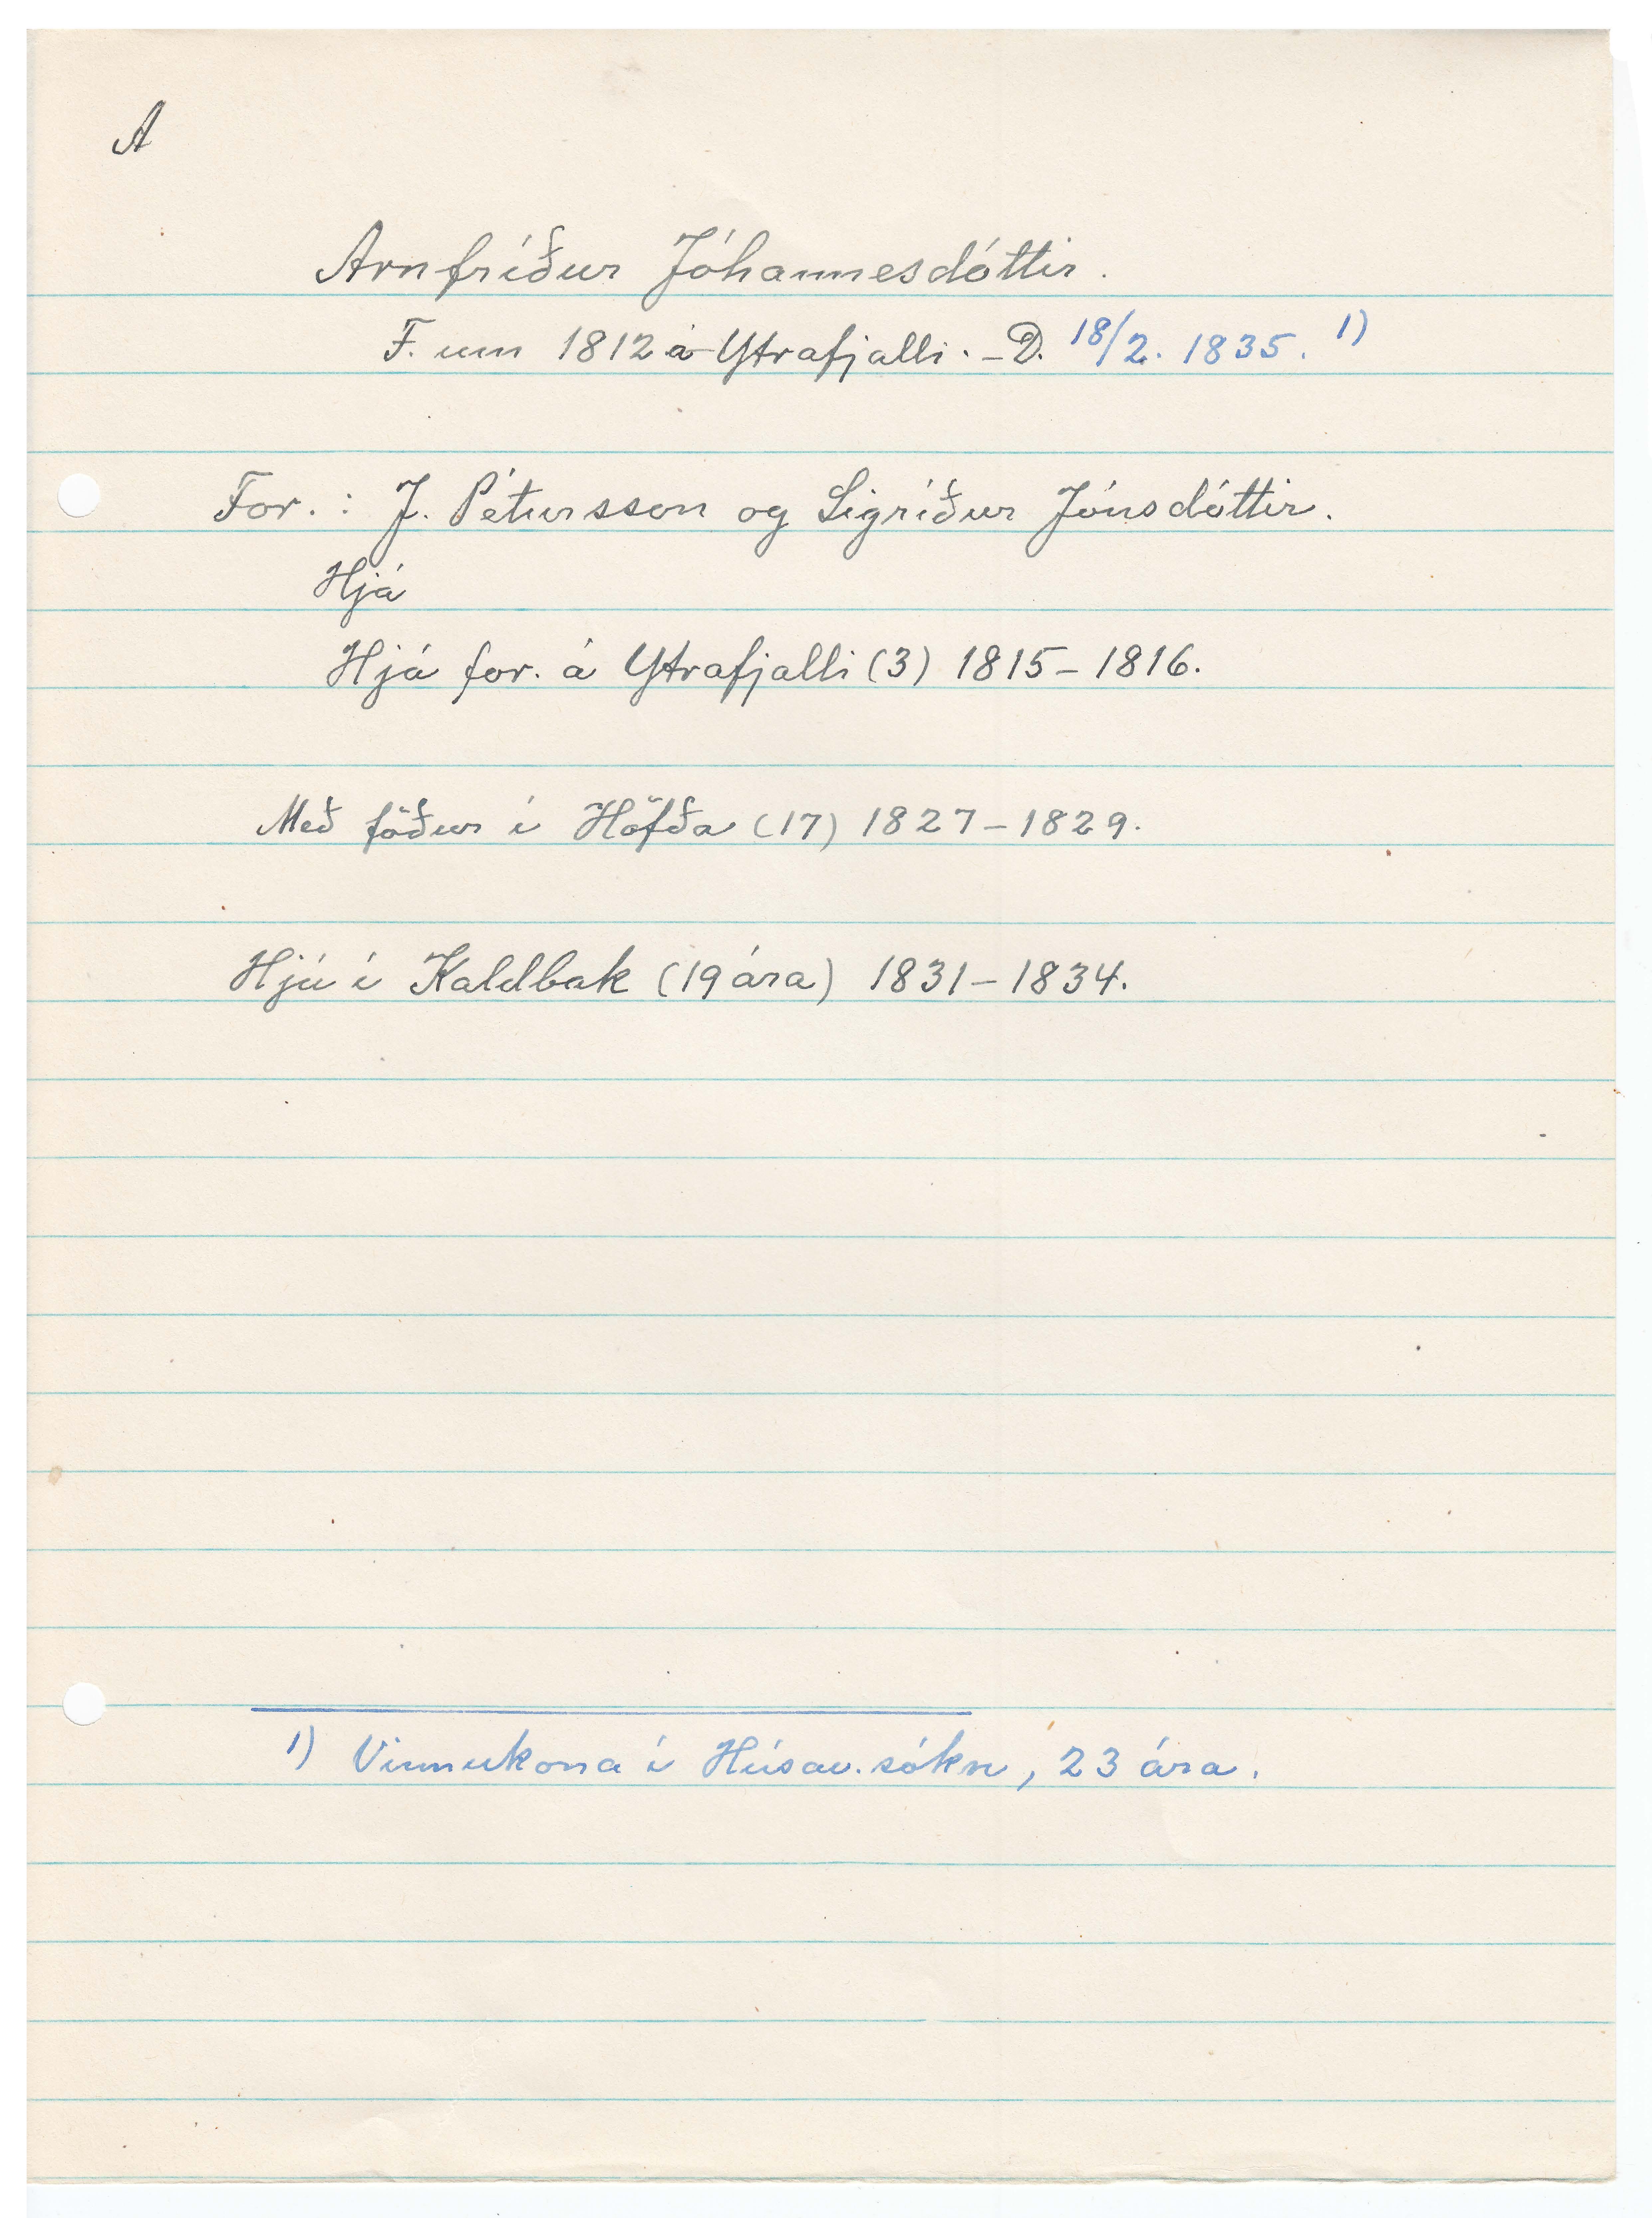 A
Arnfríður Jóhannesdóttir.
F. um 1812 á Ytrafjalli. - D. 18/2. 1835. 1)
For. : J. Pétursson og Sigríður Jónsdóttir.
Hjá
Hjá for. á Ytrafjalli (3) 1815 - 1816.
Með föður í Höfða (17) 1827 - 1829.
Hjú í Kaldbak (19 ára) 1831 - 1834.
1) Vinnukona í Húsav. sókn, 23 ára.